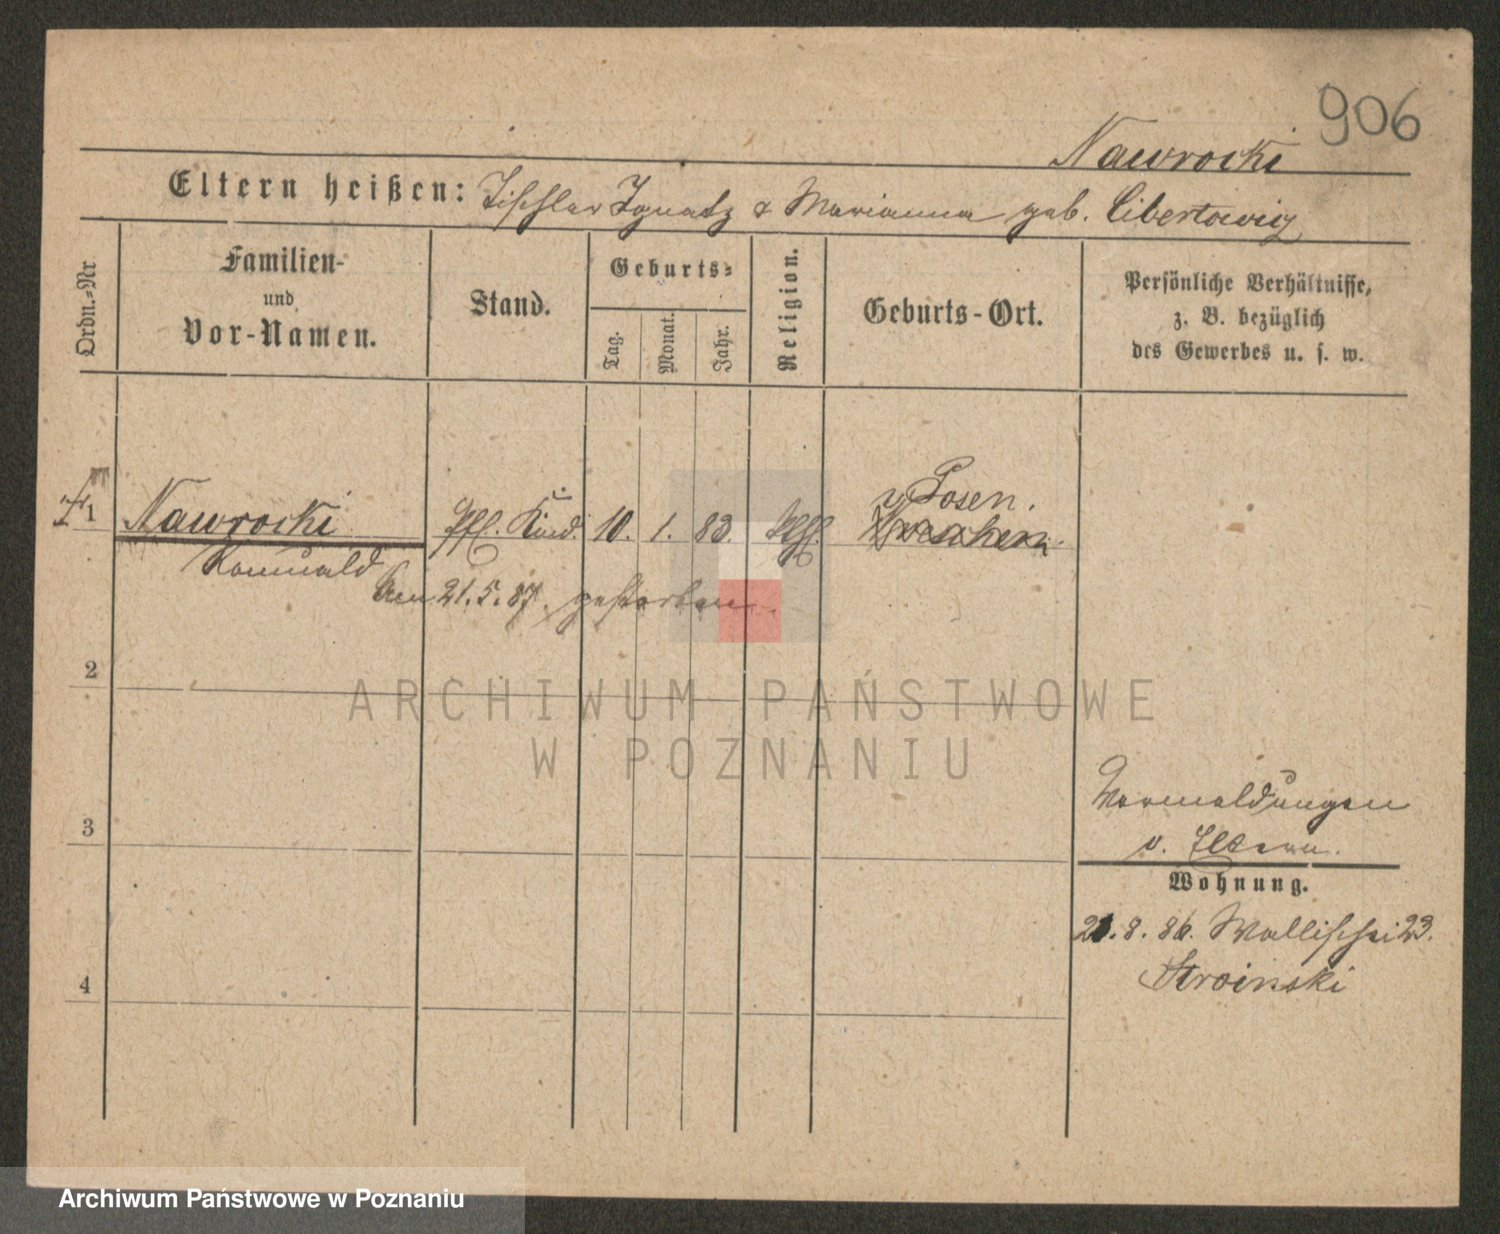 906
Nawrocki
Eltern heißen: Tischler Ignatz & Marianna geb. Cibertowicz
Ordn.=Nr
Familien-
und
Vor-Namen.
Stand.
Geburts=
Tag.
Monat.
Jahr.
Religion.
Geburts-Ort.
Persönliche Verhältnisse,
z. B. bezüglich
des Gewerbes u. s. w.
Posen.
1 Nawrocki Kind. 10. 1. 83. Wreschen.
Romuald
Am 21.5.87. gestorben.
2
ARCHIWUM PAŃSTWOWE
W POZNANIU
3
v. Eltern.
Wohnung.
8. 86. Wallischei 23.
Stroinski
4
Archiwum Państwowe w Poznaniu